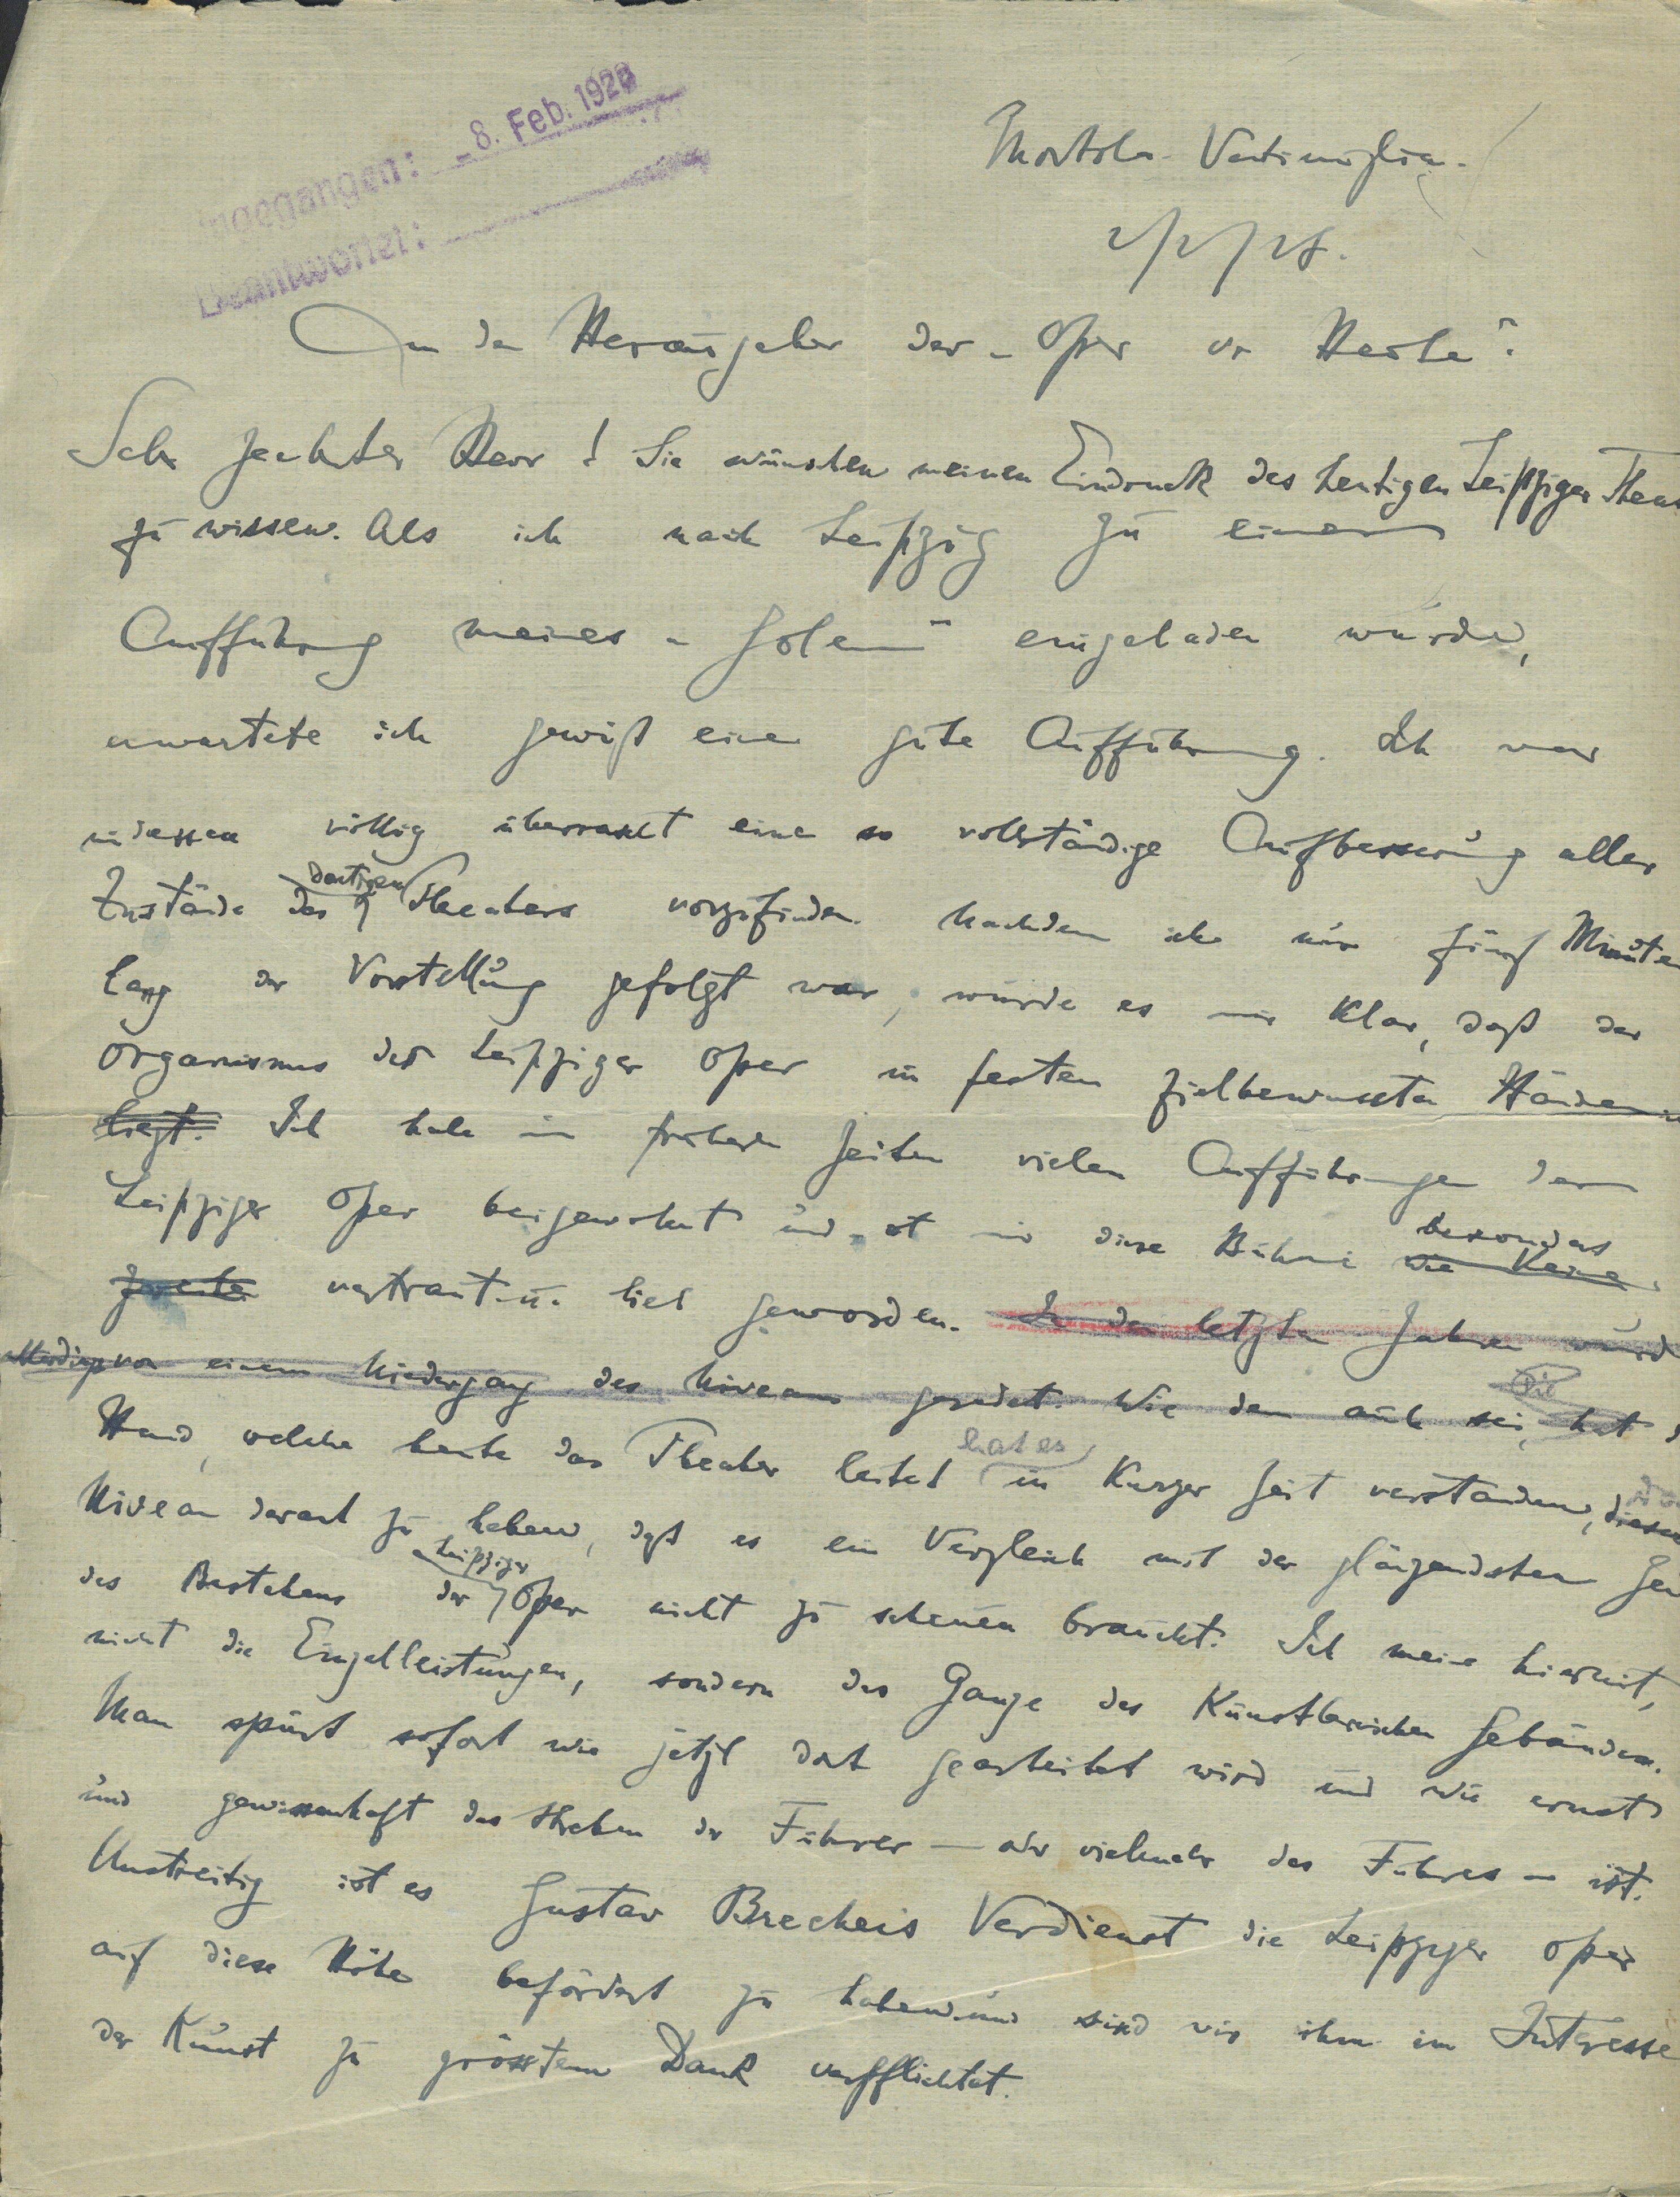 Eingegangen: - 8. Feb. 1928
Beantwortet:
Mortola-Ventimiglia.
2/2/28.
An den Herausgeber der „Oper von Heute“.
Sehr geehrter Herr! Sie wünschen meinen Eindruck des heutigen Leipziger Thea
zu wissen. Als ich nach Leipzig zu einer
Aufführung meines „Golem“ eingeladen wurde,
erwartete ich gewiß eine gute Aufführung. Ich war
indessen völlig überrascht eine so vollständige Aufbesserung aller
Zustände des dortigen Theaters vorzufinden. Nachdem ich nur fünf Minuten
lang der Vorstellung gefolgt war, wurde es mir klar, daß der
Organismus der Leipziger Oper in festen zielbewussten Händen
liegt. Ich habe in früheren Zeiten vielen Aufführungen der
Leipziger Oper beigewohnt und ist mir diese Bühne wie keine besonders
zweite vertraut u. lieb geworden. In den letzten Jahren wurde
allerdings von einem Niedergang des Niveaus geredet. Wie dem auch sei, hat Die
Hand, welche heute das Theater leitet hat es in kurzer Zeit verstanden, dieses
Niveau derart zu heben, daß es ein Vergleich mit der glänzendsten
des Bestehens der Leipziger Oper nicht zu scheuen braucht. Ich meine hiermit,
nicht die Einzelleistungen, sondern das Ganze des künstlerischen Gebäudes.
Man spürt sofort wie jetzt dort gearbeitet wird und wie ernst
und gewissenhaft das Streben der Führer — oder vielmehr des Führers — ist.
Unstreitig ist es Gustav Brechers Verdienst die Leipziger Oper
auf diese Höhe befördert zu haben und sind wir ihm im Interesse
der Kunst zu grösstem Dank verpflichtet.